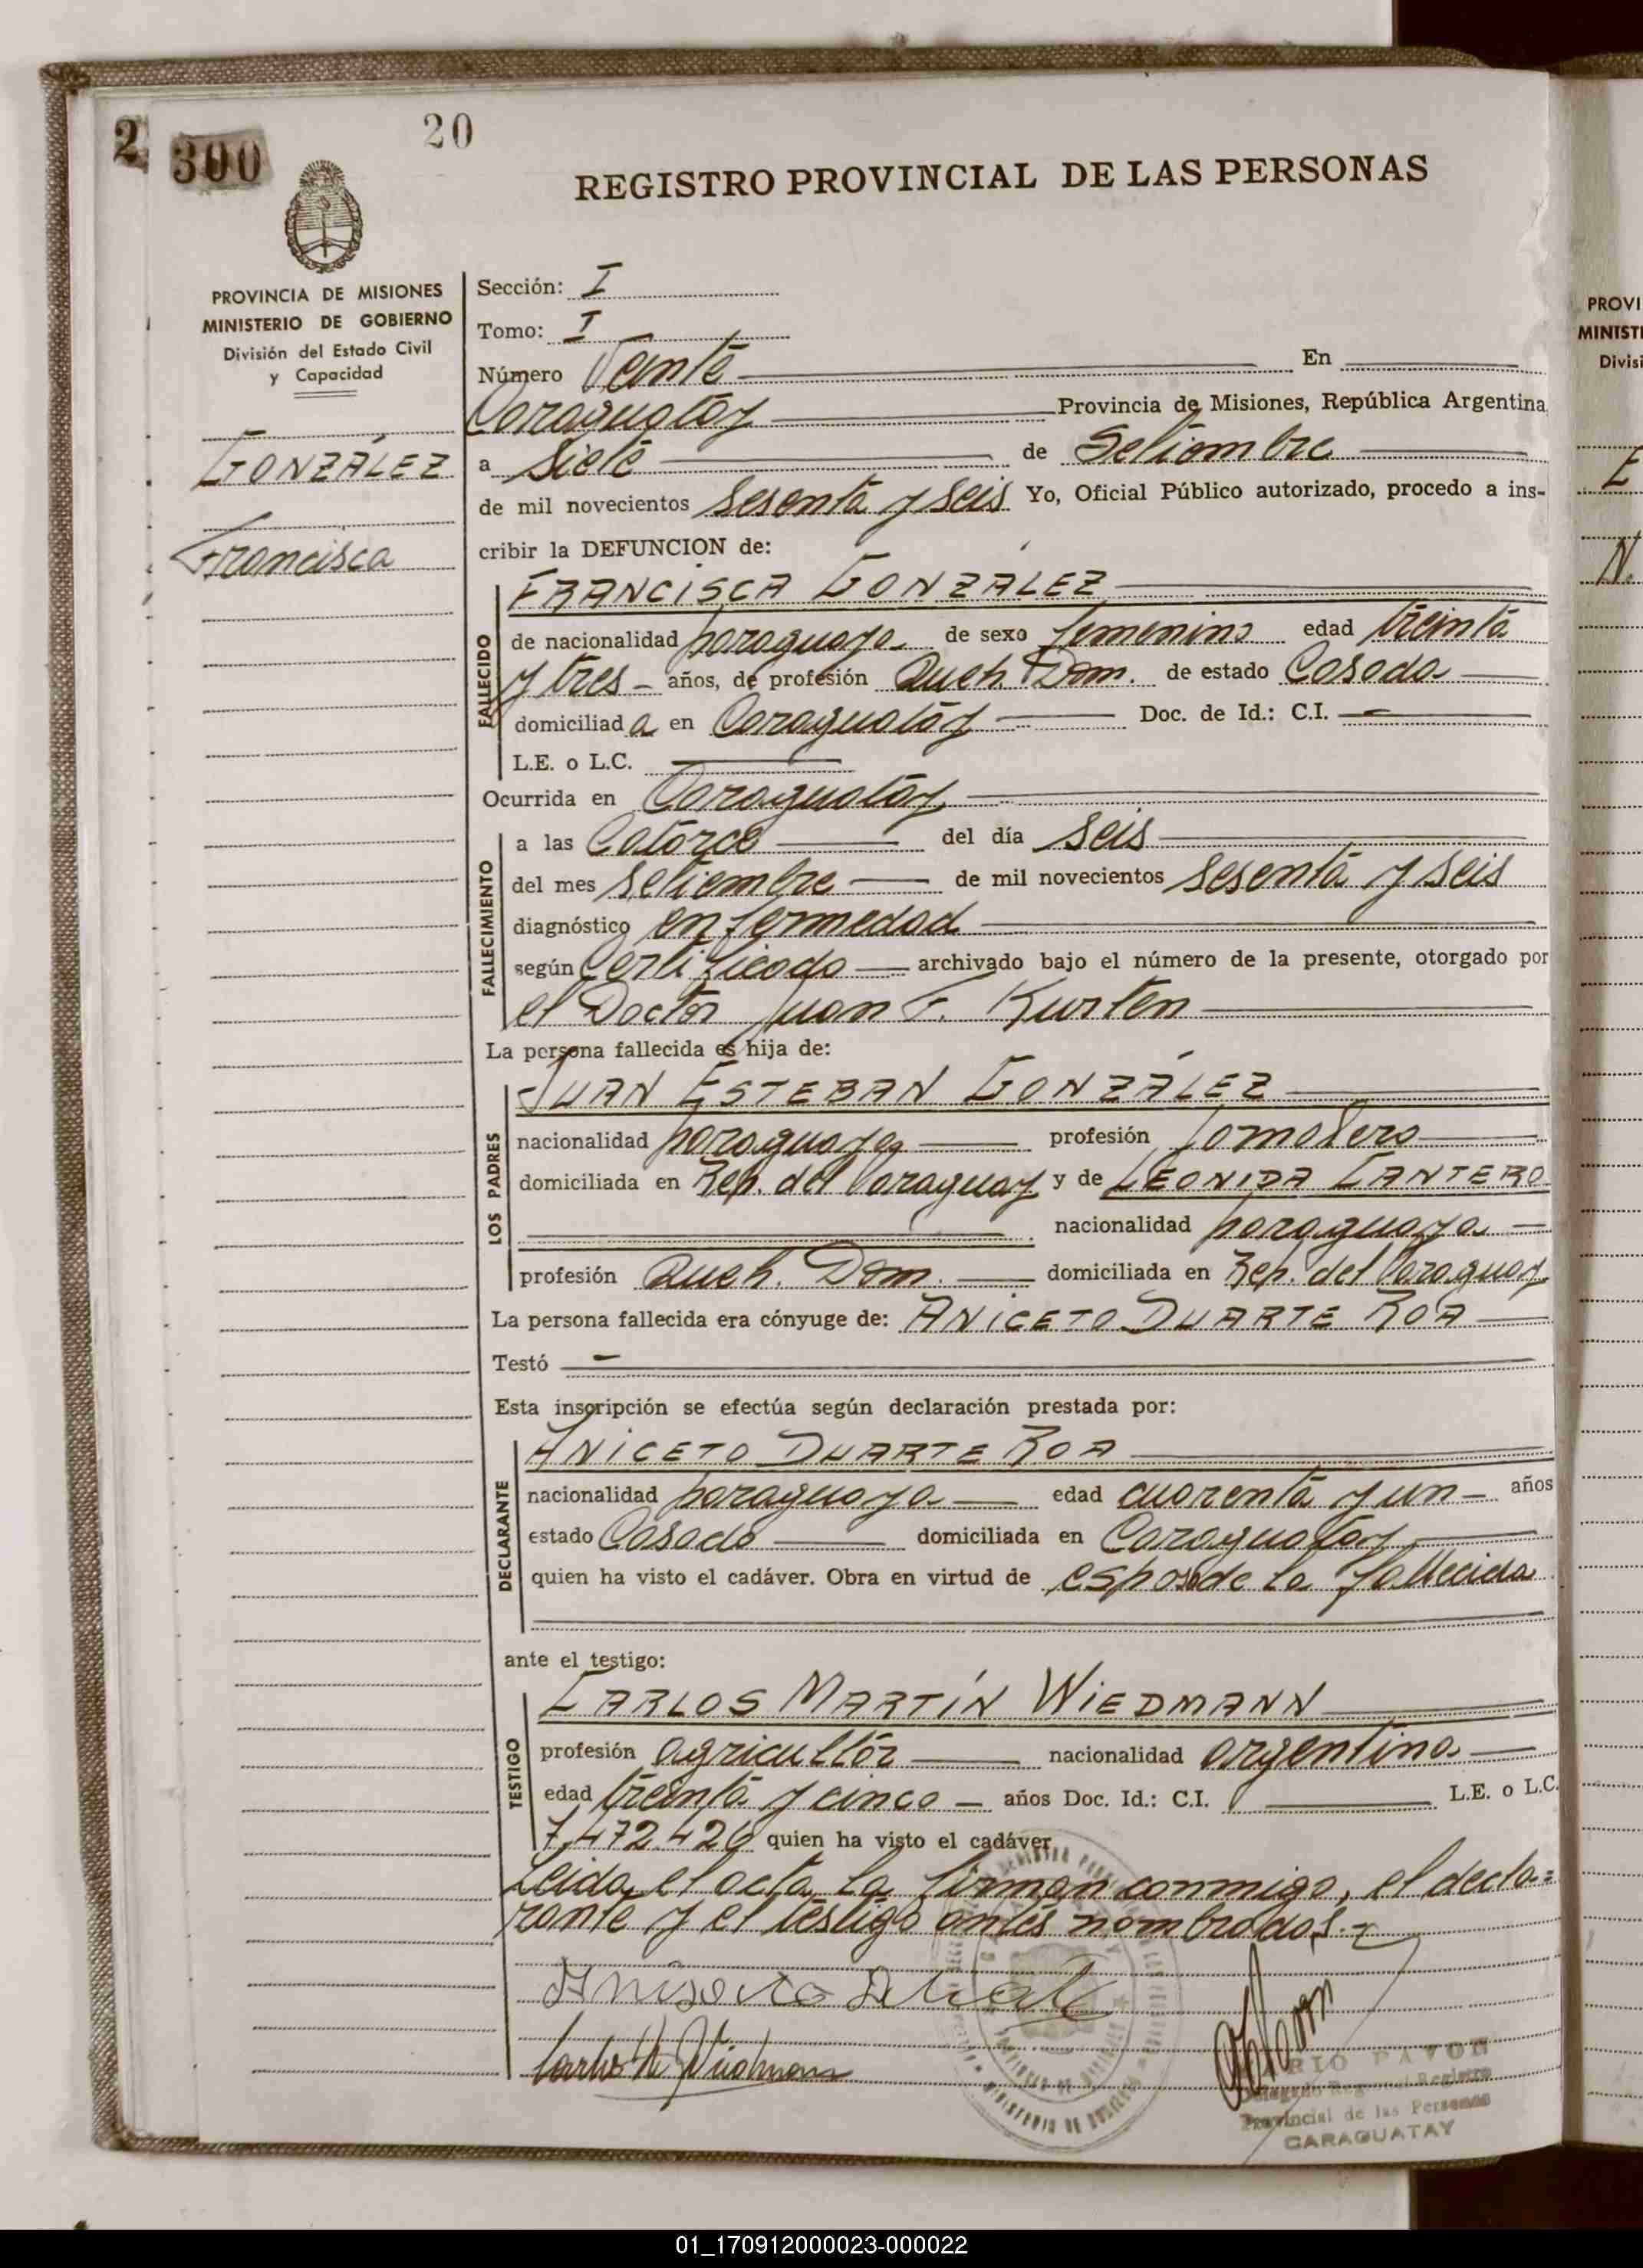 2 300 20
REGISTRO PROVINCIAL DE LAS PERSONAS
PROVINCIA DE MISIONES
MINISTERIO DE GOBIERNO
División del Estado Civil
y Capacidad
GONZÁLEZ
Francisca
Sección: I
Tomo: I
Número Veinte En
Caraguatay Provincia de Misiones, República Argentina,
a Siete de Setiembre
de mil novecientos sesenta y seis Yo, Oficial Público autorizado, procedo a ins-
cribir la DEFUNCION de:
FALLECIDO
FRANCISCA GONZALEZ
de nacionalidad paraguaya de sexo femenino edad treinta
y tres años, de profesión Queh. Dom. de estado Casada
domiciliada en Caraguatay Doc. de Id.: C.I.
L.E. o L.C.
Ocurrida en Caraguatay
FALLECIMIENTO
a las Catorce del día seis
del mes setiembre de mil novecientos sesenta y seis
diagnóstico enfermedad
según certificado archivado bajo el número de la presente, otorgado por
el Doctor Juan F. Kurten
La persona fallecida es hija de:
LOS PADRES
JUAN ESTEBAN GONZÁLEZ
nacionalidad profesión jornalero
domiciliada en Rep. del Paraguay y de LEONIDA CANTERO
nacionalidad paraguaya
profesión Queh. Dom. domiciliada en Rep. del Paraguay
La persona fallecida era cónyuge de: ANICETO DUARTE ROA
Testó
Esta inscripción se efectúa según declaración prestada por:
DECLARANTE
ANICETO DUARTE ROA
nacionalidad paraguaya edad cuarenta y un años
estado Casado domiciliada en Caraguatay
quien ha visto el cadáver. Obra en virtud de esposo de la fallecida
ante el testigo:
TESTIGO
CARLOS MARTÍN WIEDMANN
profesión agricultor nacionalidad argentina
edad treinta y cinco años Doc. Id.: C.I. L.E. o L.C.
7.472.426 quien ha visto el cadáver
Leida el acta la firman conmigo, el decla=
rante y el testigo antes nombrados.-
RIO PAVON
Delegado Regional Registro
Provincial de las Personas
CARAGUATAY
PROVI
MINISTE
Divisi
01_170912000023-000022